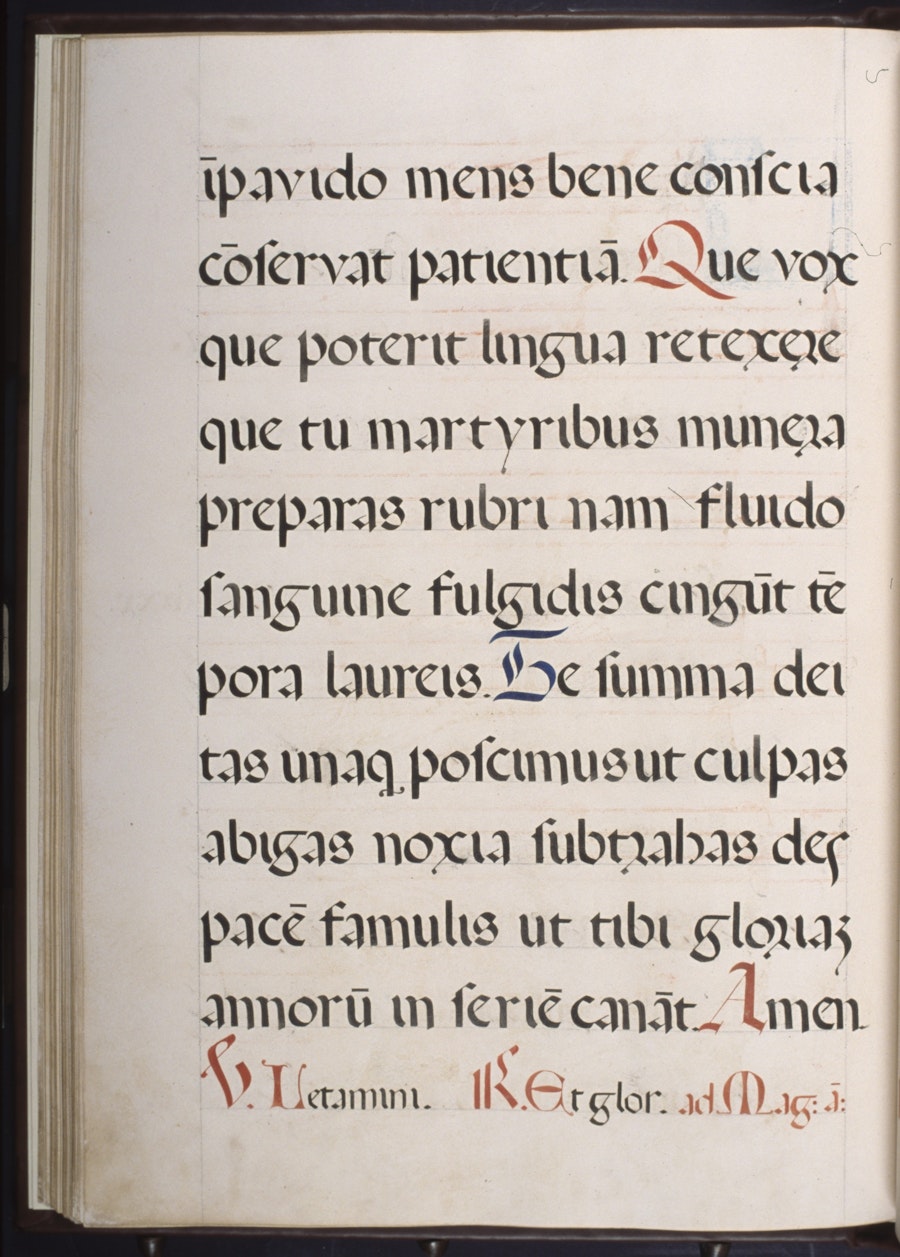 īpavido mens bene conſcia
cōſervat patientiā. Que vox
que poterit lingua retexere
que tu martyribus munera
preparas rubri nam fluido
ſanguine fulgidis cingūt tē
pora laureis. Te ſumma dei
tas unaq poſcimus ut culpas
abigas noxia ſubtrahas des
pacē famulis ut tibi gloriaꝫ
annorū in ſeriē canāt. Amen.
V. Letamini. R. Et glor. ad Mag: ā: